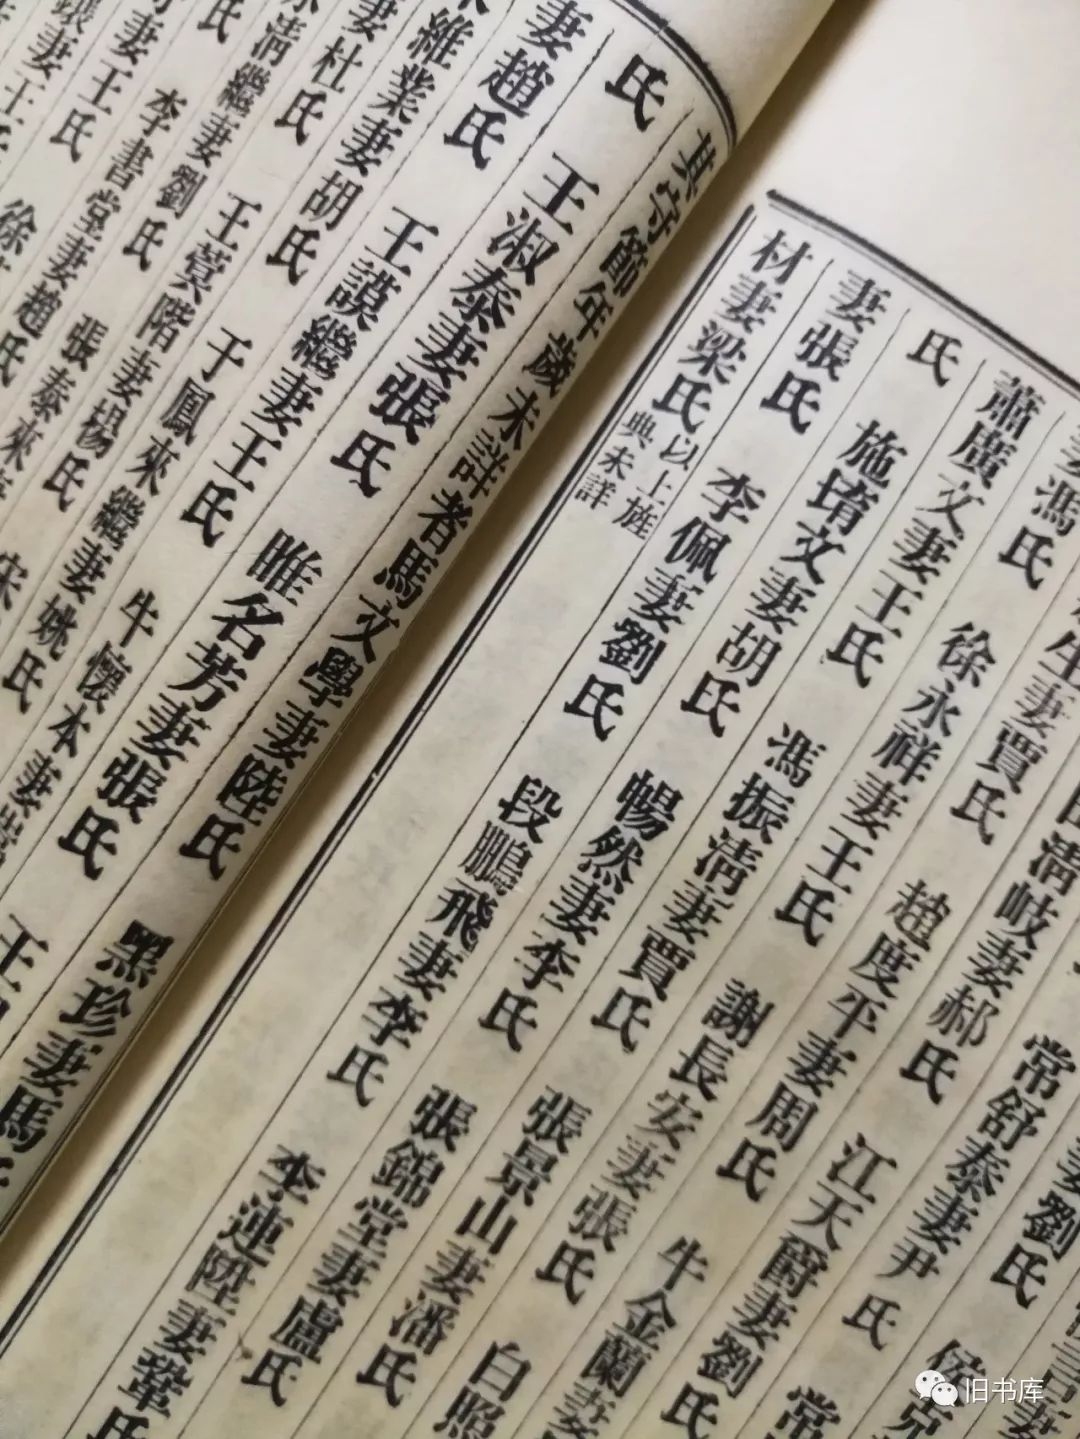 妻劉氏
常舒泰妻尹氏 常
田清岐妻郝氏 江天爵妻劉氏
生妻賈氏 趙度平妻周氏 牛金蘭妻
妻馮氏 徐永祥妻王氏 謝長安妻張氏 白照
蕭廣文妻王氏 馮振清妻賈氏 張景山妻潘氏
氏 施堉文妻胡氏 暢然妻李氏 張錦堂妻盧氏
妻張氏 李佩妻劉氏 段鵬飛妻李氏 李連陞妻鞏氏
材妻梁氏 以上旌典未詳
其守節年歲未詳者馬文學妻陸氏 黑珍妻馬氏
氏 王淑泰妻張氏 睢名芳妻張氏 王
妻趙氏 王謨繼妻王氏 牛懷本妻常
維業妻胡氏 于鳳來繼妻姚氏
妻杜氏 王蓂階妻楊氏 宋
清繼妻劉氏 張泰來
氏 李書堂妻趙氏
妻王氏 徐
妻王
旧书库